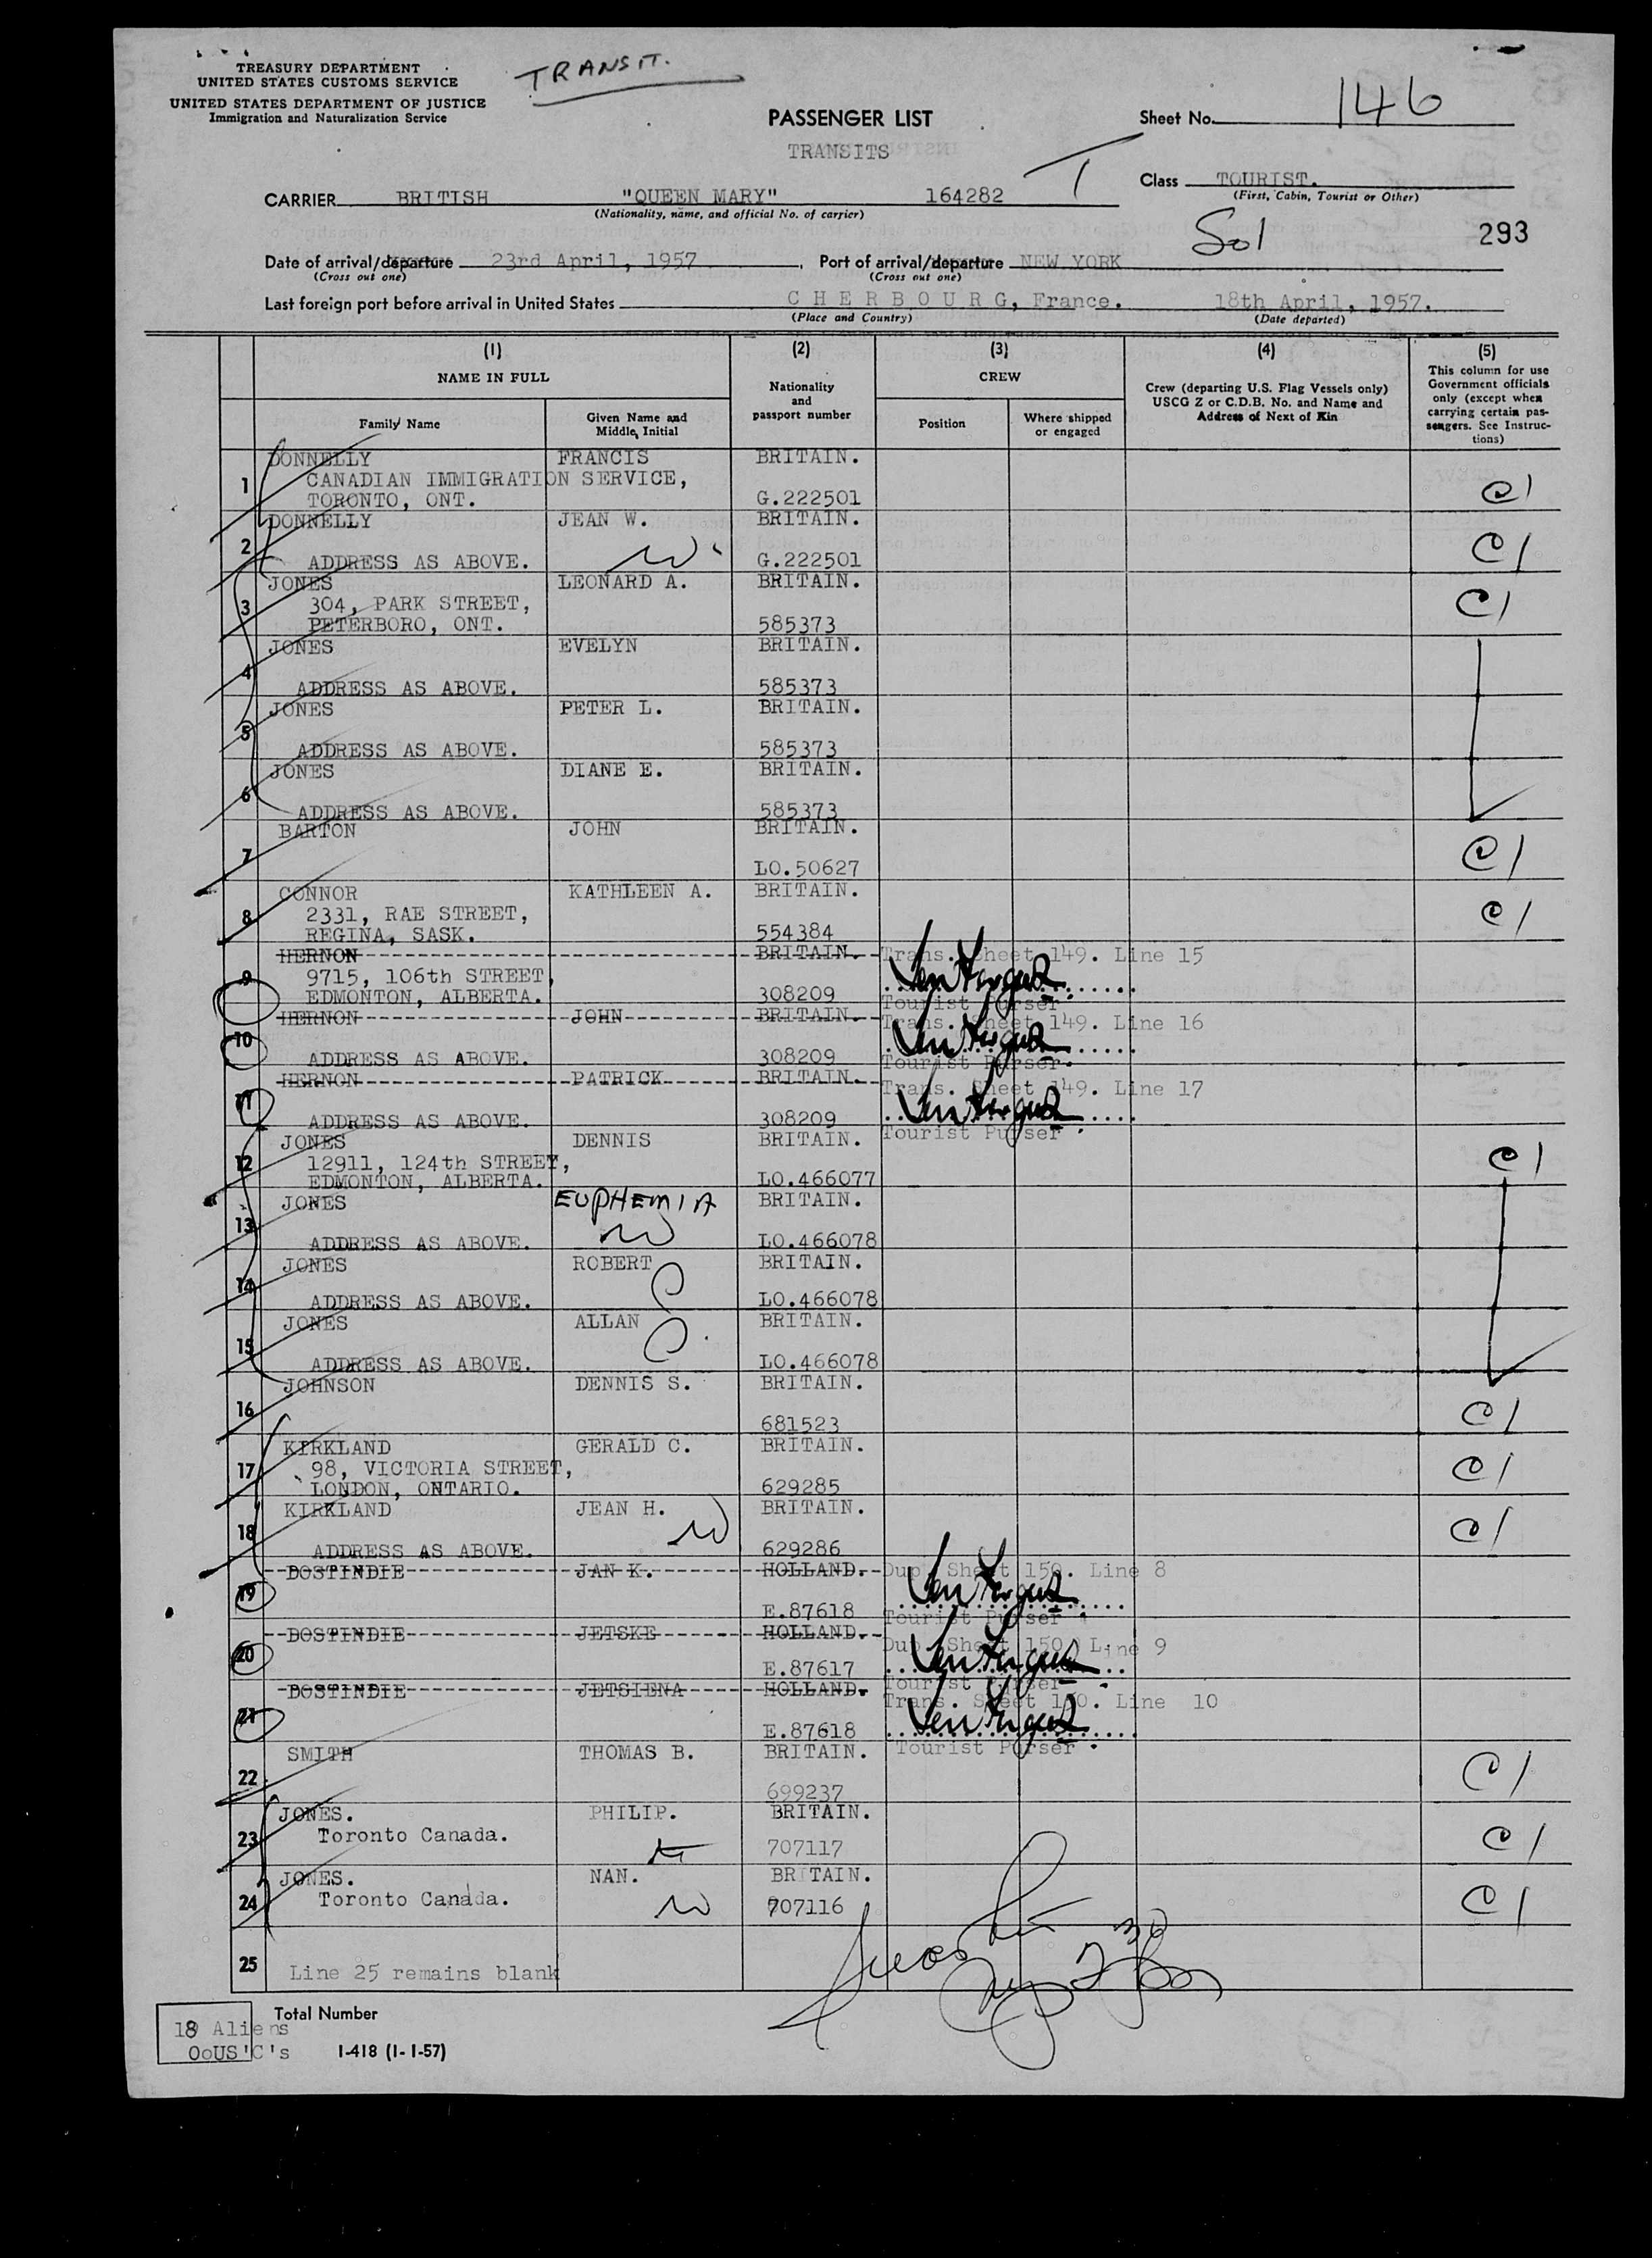 TREASURY DEPARTMENT
UNITED STATES CUSTOMS SERVICE
UNITED STATES DEPARTMENT OF JUSTICE
Immigration and Naturalization Service
TRANSIT.
PASSENGER LIST
TRANSITS
Sheet No. 146
T
Class TOURIST.
(First, Cabin, Tourist or Other)
CARRIER BRITISH "QUEEN MARY" 164282
(Nationality, name, and official No. of carrier)
293
Date of arrival/departure 23rd April, 1957 , Port of arrival/departure NEW YORK
(Cross out one) (Cross out one)
Last foreign port before arrival in United States CHERBOURG, France. 18th April, 1957.
(Place and Country) (Date departed)
(1) (2) (3) (4) (5)
NAME IN FULL
Family Name
Given Name and Middle Initial
Nationality and passport number
CREW
Position
Where shipped or engaged
Crew (departing U.S. Flag Vessels only) USCG Z or C.D.B. No. and Name and Address of Next of Kin
This column for use Government officials only (except when carrying certain passengers. See Instructions)
1 DONNELLY FRANCIS BRITAIN.
CANADIAN IMMIGRATION SERVICE,
TORONTO, ONT. G.222501 C1
2 DONNELLY JEAN W. BRITAIN.
ADDRESS AS ABOVE. W G.222501 C1
3 JONES LEONARD A. BRITAIN.
304, PARK STREET, C1
PETERBORO, ONT. 585373
4 JONES EVELYN BRITAIN.
ADDRESS AS ABOVE. 585373
5 JONES PETER L. BRITAIN.
ADDRESS AS ABOVE. 585373
6 JONES DIANE E. BRITAIN.
ADDRESS AS ABOVE. 585373
7 BARTON JOHN BRITAIN.
LO.50627 C1
8 CONNOR KATHLEEN A. BRITAIN.
2331, RAE STREET, C1
REGINA, SASK. 554384
9 HERNON BRITAIN. Trans. Sheet 149. Line 15
9715, 106th STREET,
EDMONTON, ALBERTA. 308209 Tourist Purser.
10 HERNON JOHN BRITAIN. Trans. Sheet 149. Line 16
ADDRESS AS ABOVE. 308209 Tourist Purser.
11 HERNON PATRICK BRITAIN. Trans. Sheet 149. Line 17
ADDRESS AS ABOVE. 308209 Tourist Purser.
12 JONES DENNIS BRITAIN.
12911, 124th STREET, C1
EDMONTON, ALBERTA. LO.466077
13 JONES EUPHEMIA BRITAIN.
ADDRESS AS ABOVE. W LO.466078
14 JONES ROBERT BRITAIN.
ADDRESS AS ABOVE. C LO.466078
15 JONES ALLAN BRITAIN.
ADDRESS AS ABOVE. C LO.466078
16 JOHNSON DENNIS S. BRITAIN.
681523 C1
17 KIRKLAND GERALD C. BRITAIN.
98, VICTORIA STREET, C1
LONDON, ONTARIO. 629285
18 KIRKLAND JEAN H. BRITAIN.
ADDRESS AS ABOVE. W 629286 C1
19 DOSTINDIE JAN K. HOLLAND. Dup. Sheet 150. Line 8
E.87618 Tourist Purser.
20 DOSTINDIE JETSKE HOLLAND. Dup. Sheet 150. Line 9
E.87617 Tourist Purser.
21 DOSTINDIE JETSIENA HOLLAND. Trans. Sheet 150. Line 10
E.87618 Tourist Purser.
22 SMITH THOMAS B. BRITAIN.
699237 C1
23 JONES. PHILIP. BRITAIN.
Toronto Canada. H 707117 C1
24 JONES. NAN. BRITAIN.
Toronto Canada. W 707116 C1
25 Line 25 remains blank
Total Number
18 Aliens
OoUS'C's
I-418 (1-1-57)